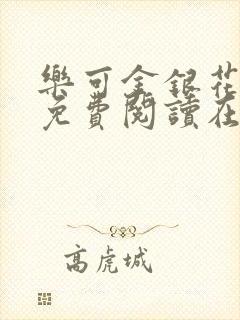 樂可金銀花
免費閱讀在
高虎城